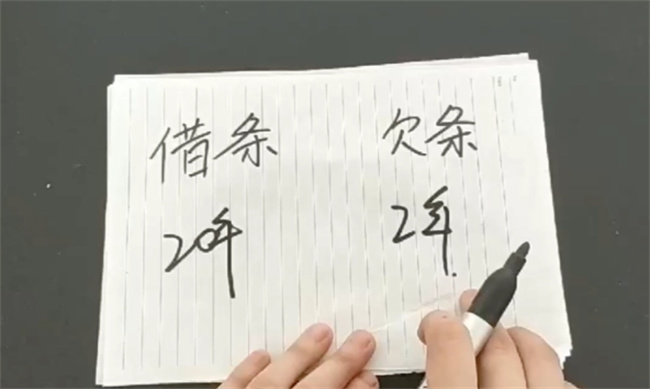 借条 欠条
20年 2年